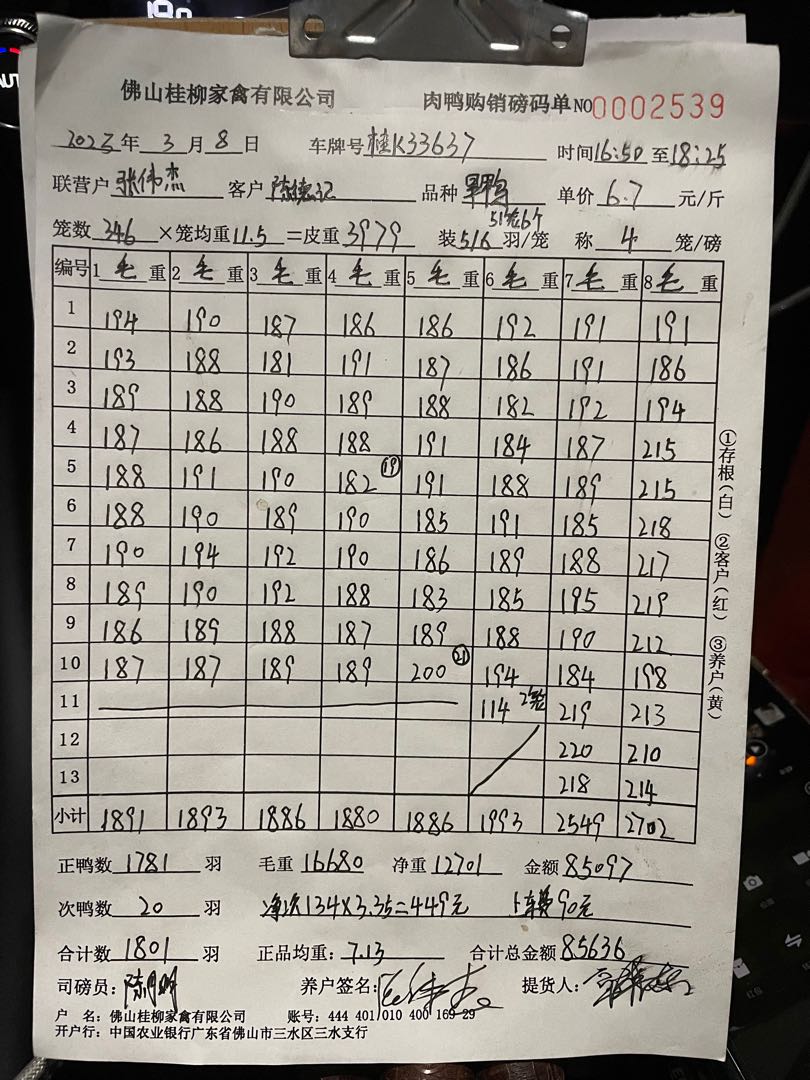 佛山桂柳家禽有限公司 肉鸭购销磅码单 NO0002539
2023年 3 月 8 日 车牌号 桂K33637 时间16:50 至18:25
联营户 张伟杰 客户 陈德记 品种 单价 6.7 元/斤
笼数 346 ×笼均重11.5 =皮重 3979 装 5/6 羽/笼 称 4 笼/磅
编号 1 毛 重 2 毛 重 3 毛 重 4 毛 重 5 毛 重 6 毛 重 7 毛 重 8 毛 重
1 194 190 187 186 186 192 191 191
2 193 188 181 191 187 186 191 186
3 189 188 190 189 188 182 192 194
4 187 186 188 188 191 184 187 215
5 188 191 190 182 ⑲ 191 188 189 215
6 188 190 189 190 185 191 185 218
7 190 194 192 190 186 189 188 217
8 189 190 192 188 183 185 195 219
9 186 189 188 187 189 188 190 212
10 187 187 189 189 200 ㉑ 194 184 198
11 114 2笼 219 213
12 220 210
13 218 214
小计 1891 1893 1886 1880 1886 1993 2549 2702
正鸭数 1781 羽 毛重 16680 净重 12701 金额 85097
次鸭数 20 羽 净次134×3.35=449元 上车费90元
合计数 1801 羽 正品均重: 7.13 合计总金额 85636
司磅员: 养户签名: 提货人:
户 名: 佛山桂柳家禽有限公司 账号: 444 401 010 400 169 29
开户行: 中国农业银行广东省佛山市三水区三水支行
①存根(白) ②客户(红) ③养户(黄)